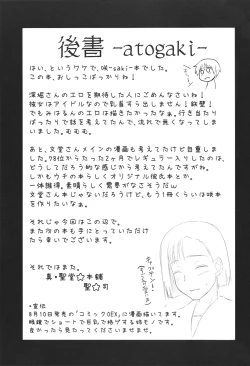 後書 -atogaki-
はい、というワケで、咲-saki-本でした。
この本、おしっこばっかりね！
深堀さんのエロを期待した人にごめんなさいね！
彼女はアイドルなので乳首すら出しません！鉄壁！
でもみはるんのエロは描きたかったなぁ。行き当り
ばったりで話を考えてたんで、流れで無くなってしま
いました。モモモ。
あと、文堂さんメインの漫画も考えてたけど自重しま
した。78位からたった2ヶ月でレギュラー入りしたのは、
どうしてだろう的な感じから考えてたんですが。
しかしウチの本らしくオリジナル彼氏本とか。
一体誰得。素晴らしく需要がなさそうだぁw
文堂さん本じゃないだろうけど、もう1冊くらいは咲本
を作りたいなぁ。
それじゃ今回はこの辺で。
また次の本も手にとっていただけ
たら幸いでございます。
それではまた。
真・聖堂☆本舗
聖☆司
・宣伝
8月10日発売の「コミック0EX」に漫画描いてます。
眼鏡でショートで巨乳で格ゲする姉モノです。
良かったら見たってくださいませませ。